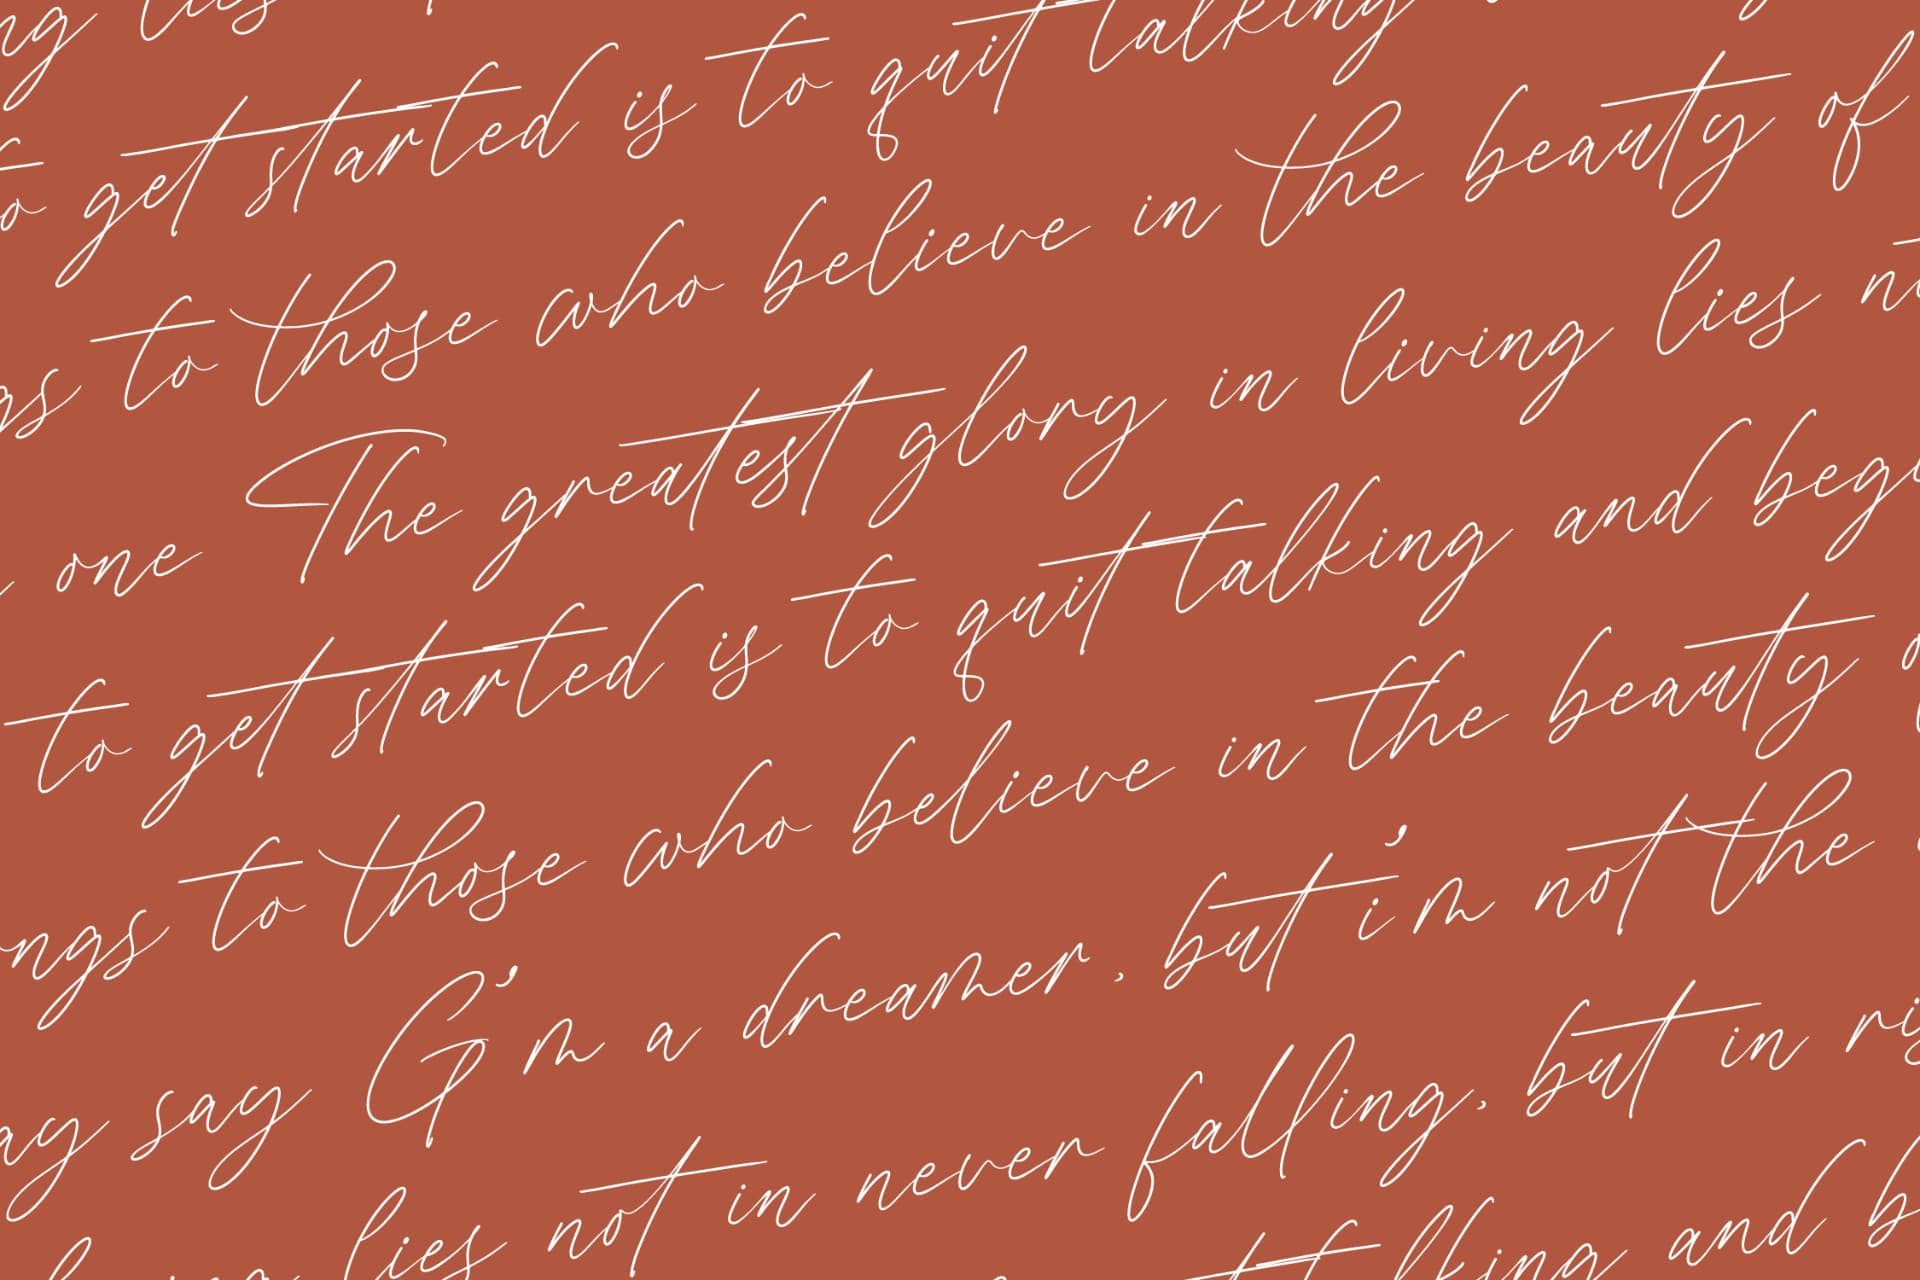 to get started is to quit talking
to those who believe in the beauty of
one The greatest glory in living lies
to get started is to quit talking and
to those who believe in the beauty
say G'm a dreamer, but i'm not the
lies not in never falling, but in
and